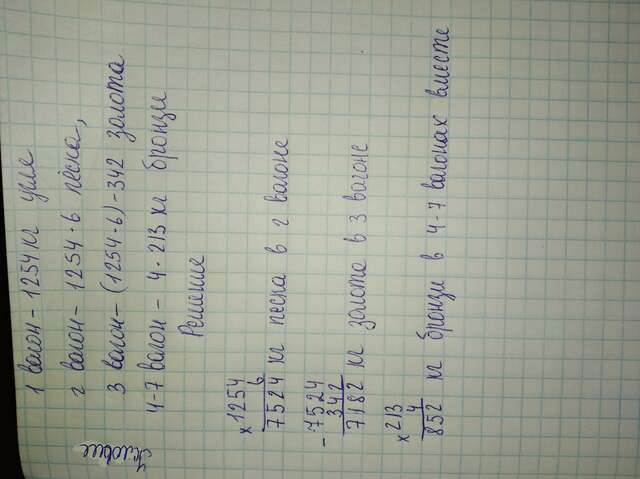 Условие
1 вагон - 1254 кг угля
2 вагон - 1254 · 6 песка,
3 вагон - (1254 · 6) - 342 золота
4-7 вагон - 4 · 213 кг бронзи
Решение
× 1254
6
7524 кг песка в 2 вагоне
- 7524
342
7182 кг золота в 3 вагоне
× 213
4
852 кг бронзи в 4-7 вагонах вместе